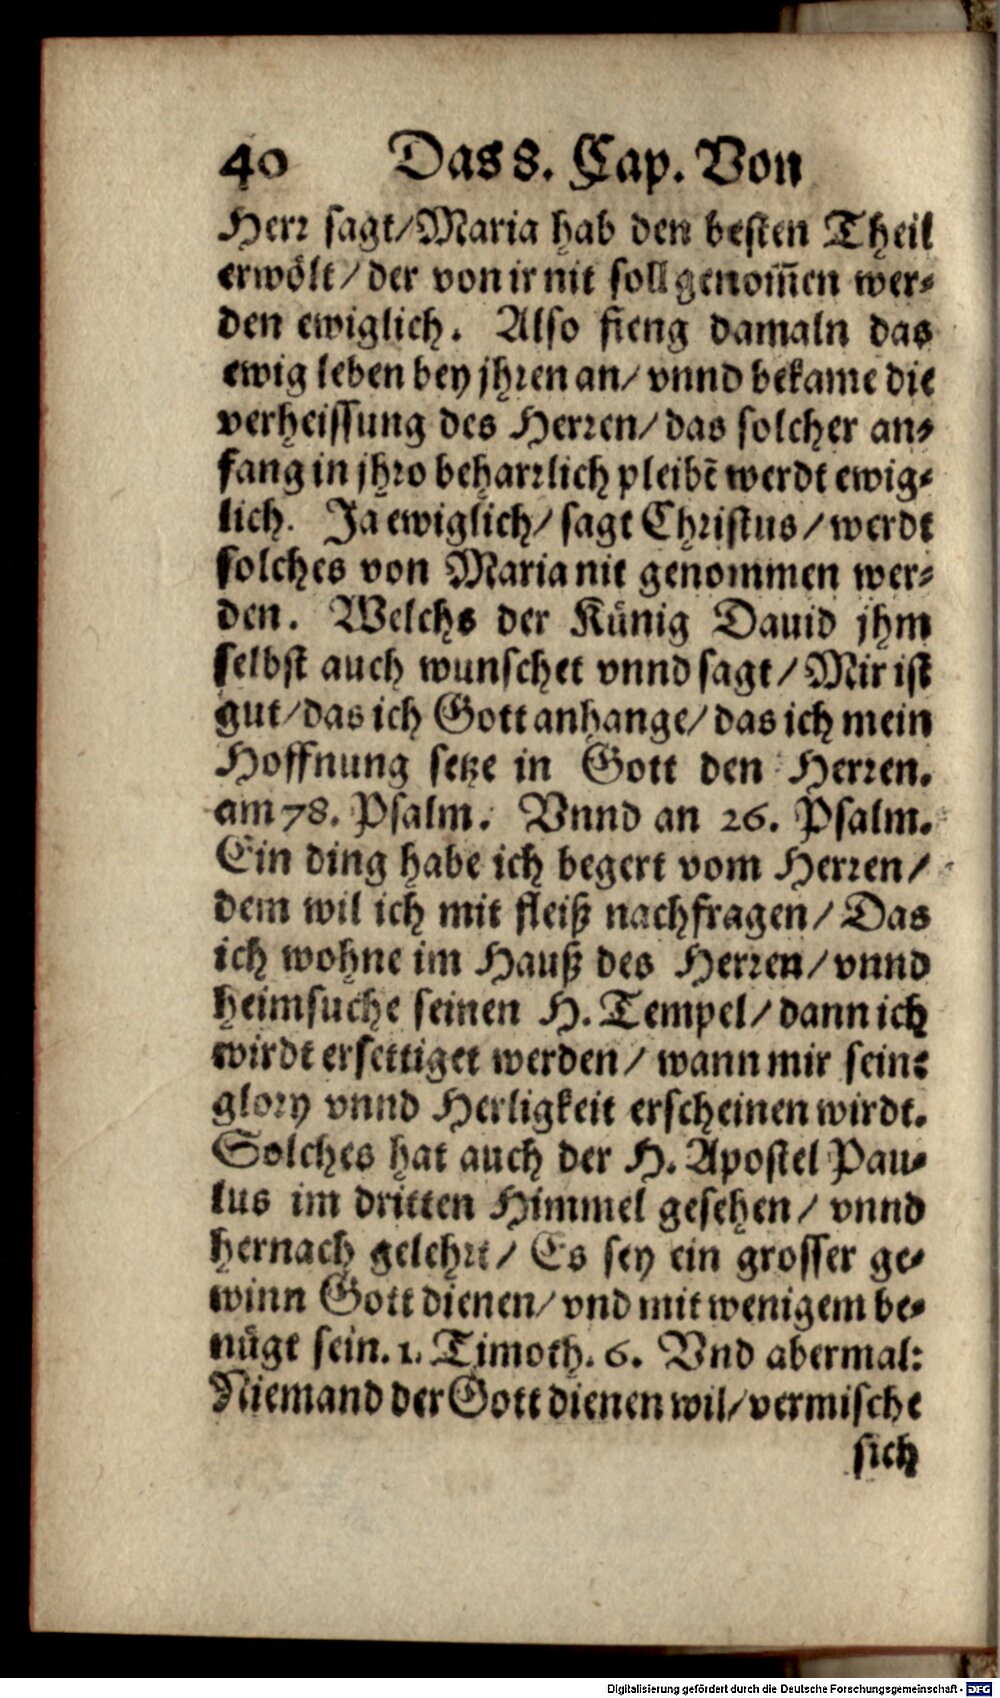 40 Das 8. Cap. Von
Herr sagt/Maria hab den besten Theil
erwölt/der von ir nit soll genom̃en wer-
den ewiglich. Also fieng damaln das
ewig leben bey jhren an/vnnd bekame die
verheissung des Herren/das solcher an-
fang in jhro beharrlich pleibẽ werdt ewig-
lich. Ja ewiglich/sagt Christus/werdt
solches von Maria nit genommen wer-
den. Welchs der Künig Dauid jhm
selbst auch wunschet vnnd sagt/Mir ist
gut/das ich Gott anhange/das ich mein
Hoffnung setze in Gott den Herren.
am 78. Psalm. Vnnd an 26. Psalm.
Ein ding habe ich begert vom Herren/
dem wil ich mit fleiß nachfragen/Das
ich wohne im Hauß des Herren/vnnd
heimsuche seinen H. Tempel/dann ich
wirdt ersettiget werden/wann mir seine
glory vnnd Herligkeit erscheinen wirdt.
Solches hat auch der H. Apostel Pau-
lus im dritten Himmel gesehen/vnnd
hernach gelehrt/Es sey ein grosser ge-
winn Gott dienen/vnd mit wenigem be-
nügt sein. 1. Timoth. 6. Vnd abermal:
Niemand der Gott dienen wil/vermische
sich
Digitalisierung gefördert durch die Deutsche Forschungsgemeinschaft - DFG